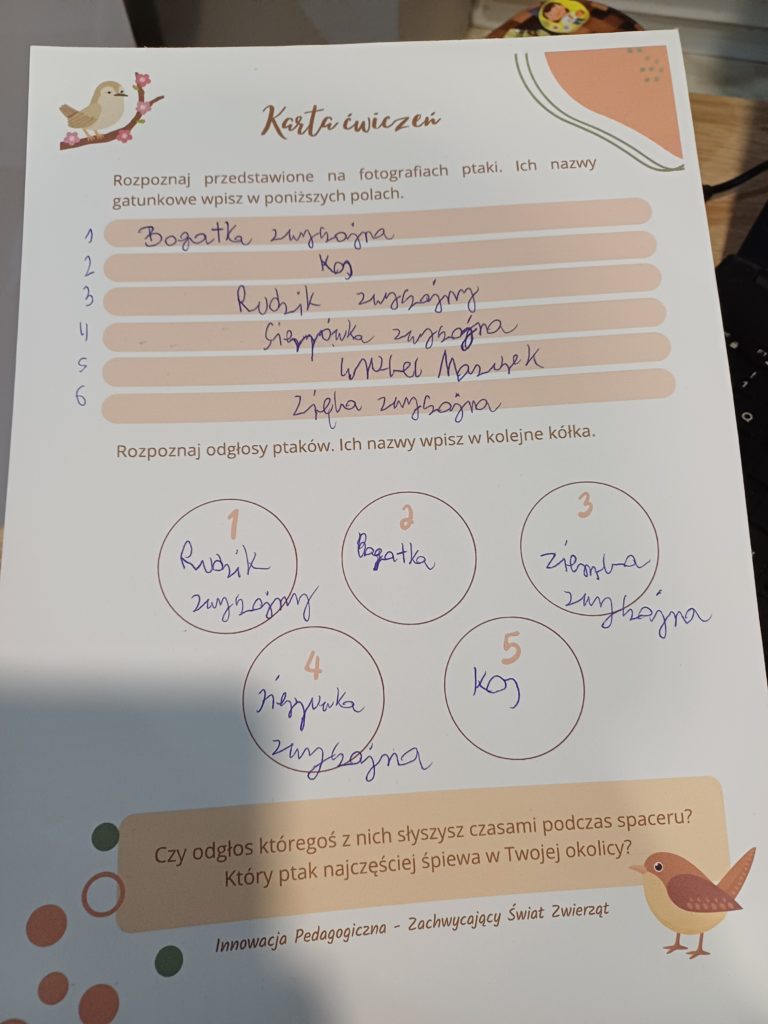 Karta ćwiczeń
Rozpoznaj przedstawione na fotografiach ptaki. Ich nazwy
gatunkowe wpisz w poniższych polach.
1 Bogatka zwyczajna
2 Kos
3 Rudzik zwyczajny
4 Sierpówka zwyczajna
5 Wróbel Mazurek
6 Zięba zwyczajna
Rozpoznaj odgłosy ptaków. Ich nazwy wpisz w kolejne kółka.
1
Rudzik
zwyczajny
2
Bogatka
3
zwyczajna
4
zwyczajna
5
Kos
Czy odgłos któregoś z nich słyszysz czasami podczas spaceru?
Który ptak najczęściej śpiewa w Twojej okolicy?
Innowacja Pedagogiczna - Zachwycający Świat Zwierząt